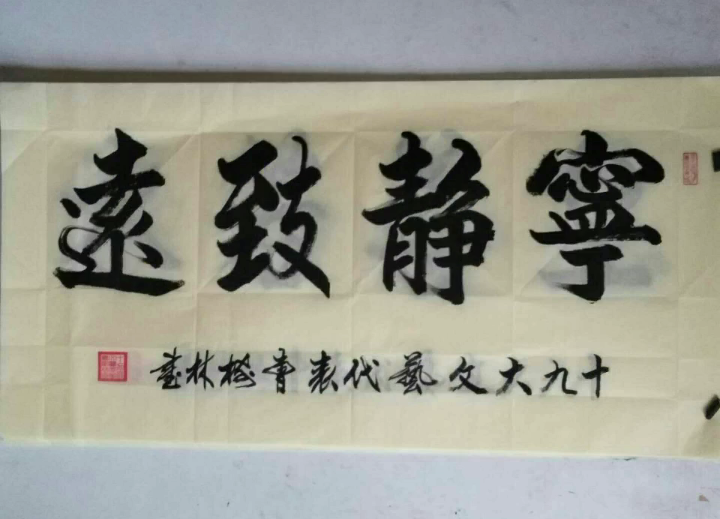 寧靜致遠
十九大文藝代表曹樹林書